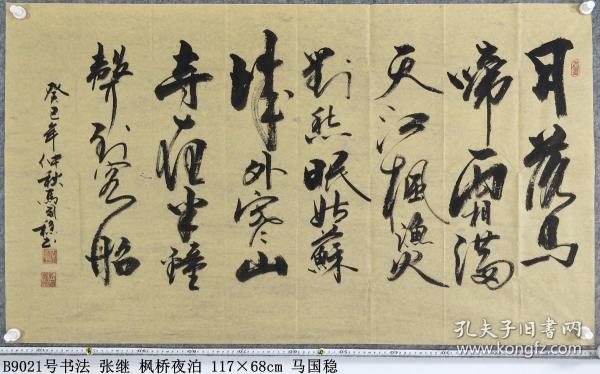 月落烏
啼霜滿
天江楓漁火
對愁眠姑蘇
城外寒山
寺夜半鐘
聲到客船
癸巳年仲秋馬國穩书
孔夫子旧书网
www.kongfz.com
B9021号书法 张继 枫桥夜泊 117×68cm 马国稳